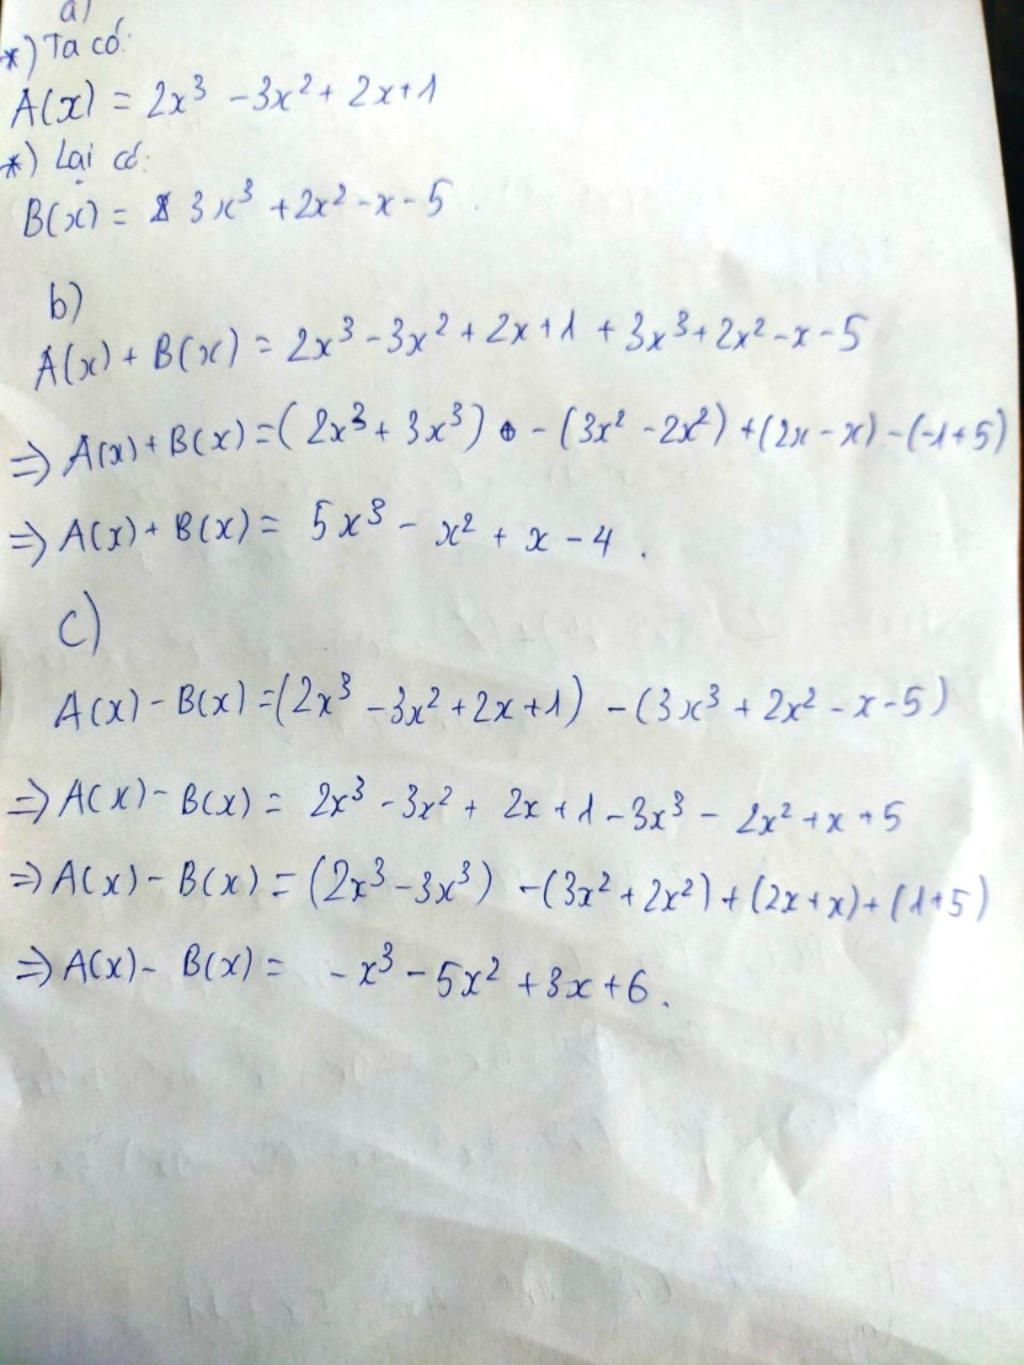 a)
*) Ta có:
A(x) = 2x³ - 3x² + 2x + 1
*) Lại có:
B(x) = 3x³ + 2x² - x - 5
b)
A(x) + B(x) = 2x³ - 3x² + 2x + 1 + 3x³ + 2x² - x - 5
⇒ A(x) + B(x) = (2x³ + 3x³) - (3x² - 2x²) + (2x - x) - (-1 + 5)
⇒ A(x) + B(x) = 5x³ - x² + x - 4.
c)
A(x) - B(x) = (2x³ - 3x² + 2x + 1) - (3x³ + 2x² - x - 5)
⇒ A(x) - B(x) = 2x³ - 3x² + 2x + 1 - 3x³ - 2x² + x + 5
⇒ A(x) - B(x) = (2x³ - 3x³) - (3x² + 2x²) + (2x + x) + (1 + 5)
⇒ A(x) - B(x) = -x³ - 5x² + 3x + 6.